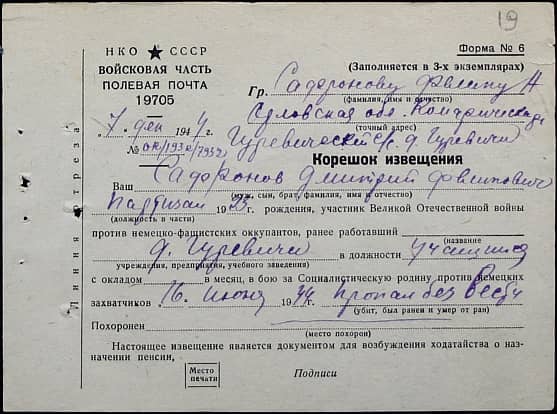 19
НКО ★ СССР
ВОЙСКОВАЯ ЧАСТЬ
ПОЛЕВАЯ ПОЧТА
19705
Форма № 6
(Заполняется в 3-х экземплярах)
Гр. Сафронову Филипу
(фамилия, имя и отчество)
Орловская обл. Комаричский
(точный адрес)
7 дек 1944 г.
Гуревический с/с д. Гуревичи
№
Корешок извещения
Ваш Сафронов Дмитрий Филипович
(муж, сын, брат, фамилия, имя и отчество)
партизан 1925 г. рождения, участник Великой Отечественной войны
(должность в части)
против немецко-фашистских оккупантов, ранее работавший
(название
д. Гуревичи в должности учащийся
учреждения, предприятия, учебного заведения)
с окладом в месяц, в бою за Социалистическую родину против немецких
захватчиков 16 июня 1944 г. пропал без вести
(убит, был ранен и умер от ран)
Похоронен
(место похорон)
Настоящее извещение является документом для возбуждения ходатайства о на-
значении пенсии,
Место
печати
Подписи
Линия отреза